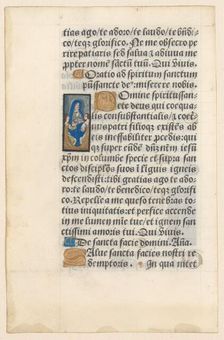 tias ago/te adoro/te laudo/te bñdi
co/teqʒ glorifico. Ne me obsecro pe
rire patiaris sed salua & adiuua me
ꝓpter nomē sactū tuū. Qui viuis.
Oratio ad spiritum sanctum
Omine spiritussan-
cte deus qui coequa
lis consubstantialis/& coet
nus patri filioqʒ existēs ab
eis ineffabiliter ꝓcedis: qui
qʒ super eūdē dūm nr̄m iesū
xp̄m in columbe specie et supra san
ctos discipłos suos ī ignis igneis
descendisti: tibi gratias ago te ado-
ro: te laudo/te benedico/teqʒ glorifi
co. Repelle a me queso tenebras to-
tius iniquitatis: et perfice accende
in me lumen mīe tue/et ignem san
ctissimi amoris tui. Qui viuis.
De sancta facie domini. Aña.
Alue sancta facies nostri re
demptoris. In qua nitet